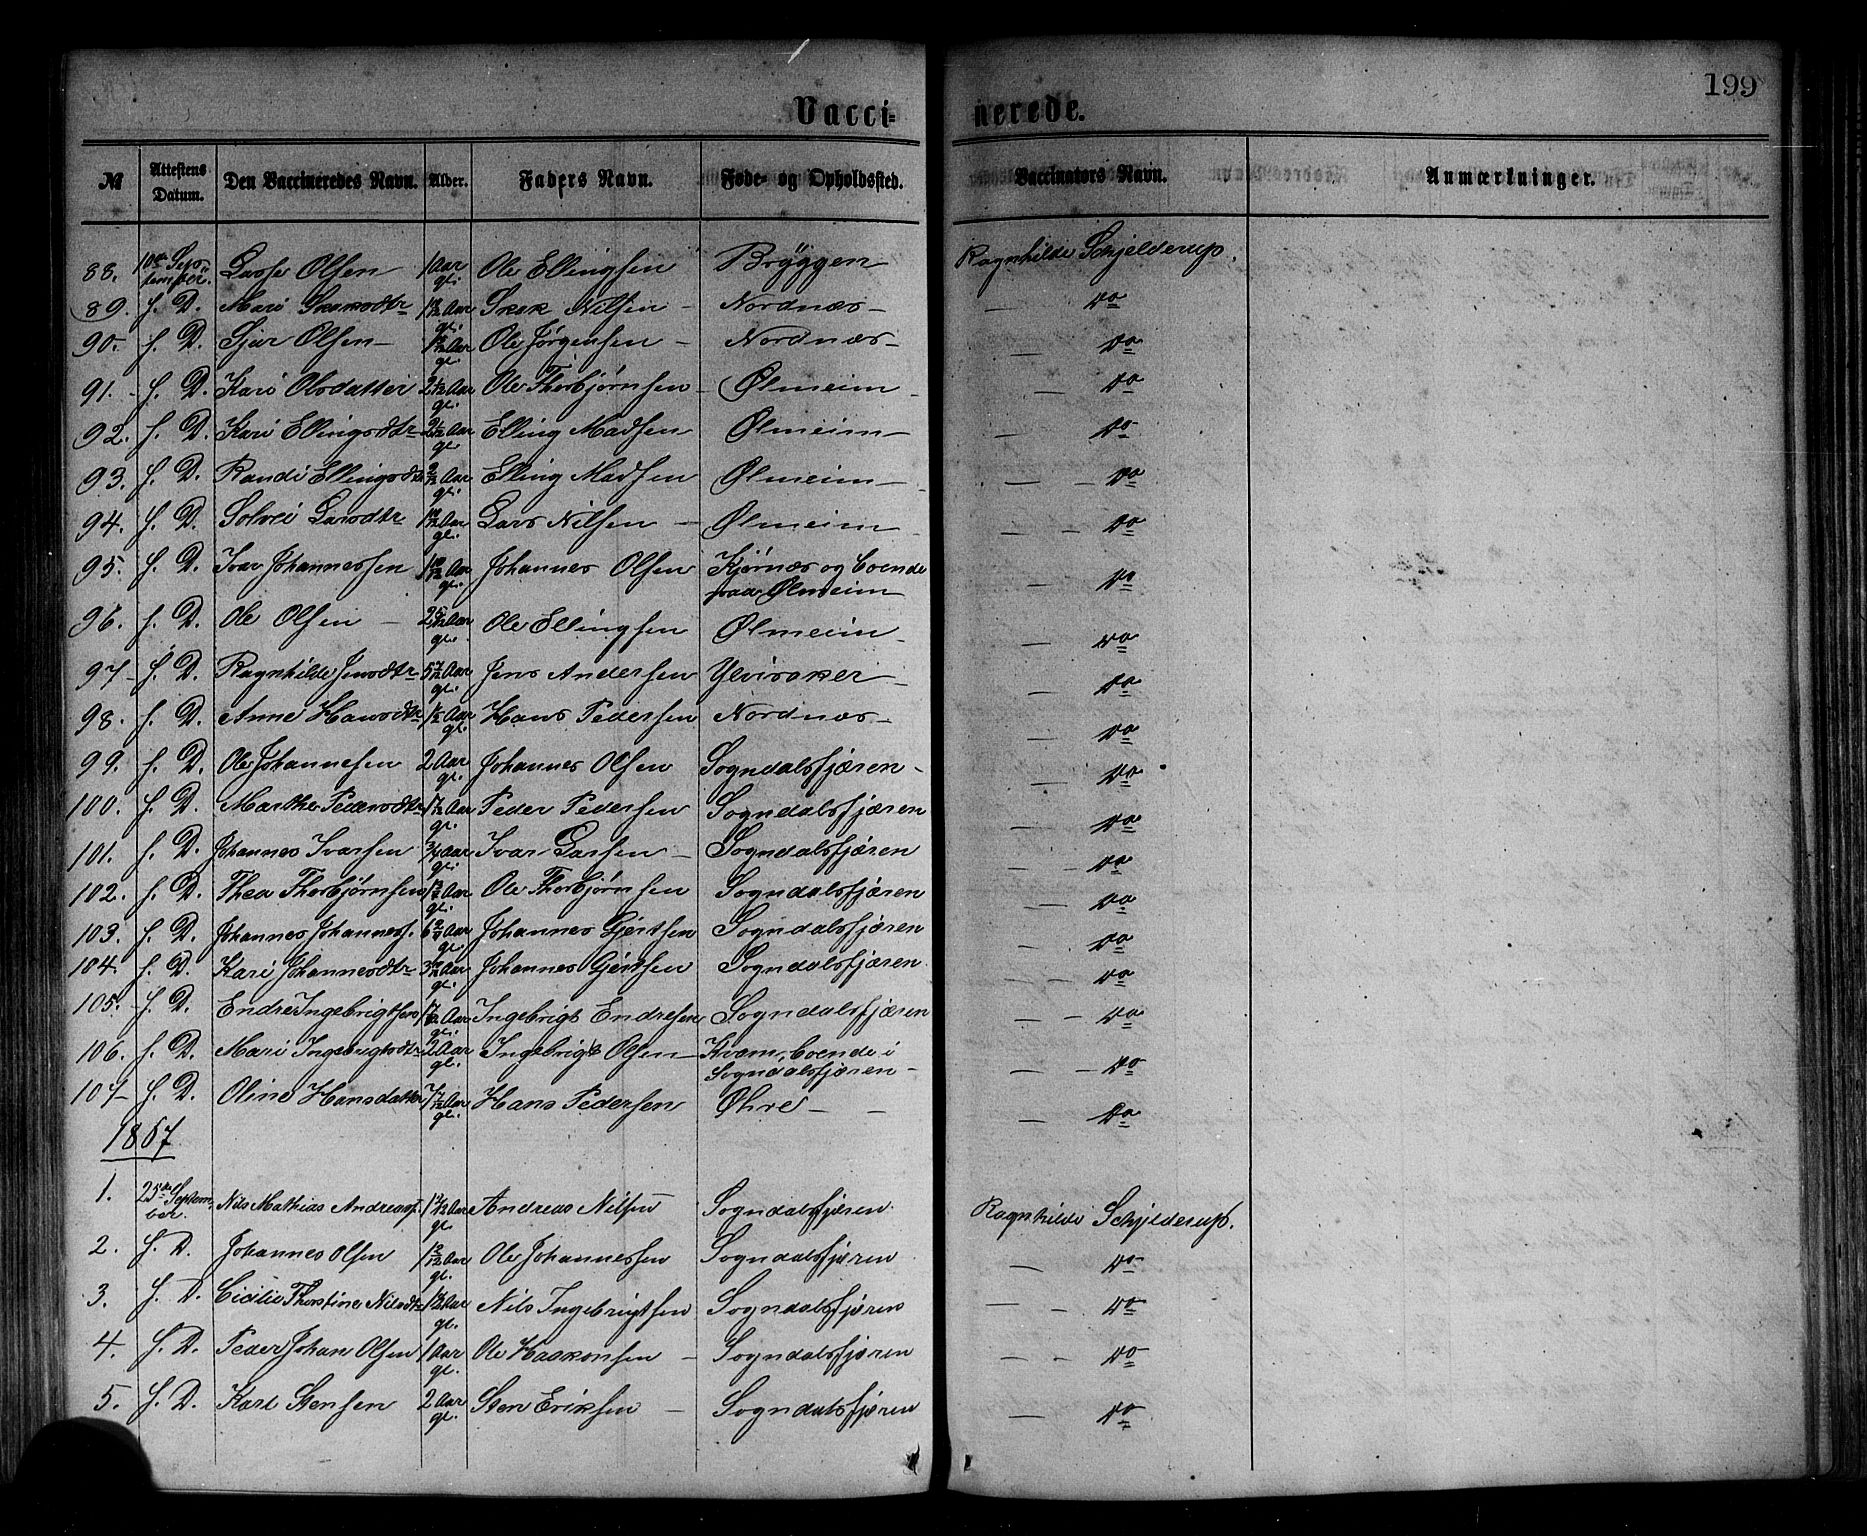 199
Vacci- nerede.
№ Attestens Datum. Den Vaccineredes Navn. Alder. Faders Navn. Føde- og Opholdssted. Vaccinators Navn. Anmærkninger.
88. 10de September. Lasse Olsen 1 Aar gl. Ole Ellingsen Brÿggen Ragnhilde Schjelderup.
89. s. D. Mari Aar gl. Nilsen - Nordnæs - — do
90. s. D. Gjur Olsen - Aar gl. Ole Jørgensen - Nordnæs - — do
91. s. D. Kari Olsdatter Aar gl. Ole Thorbjørnsen - Ølmeim — do
92. s. D. Kari Ellingsdtr Aar gl. Elling Madsen Ølmeim — do
93. s. D. Randi Ellingsdtr Aar gl. Elling Madsen Ølmeim — — - do
94. s. D. Solvei Larsdtr Aar gl. Lars Nilsen — Ølmeim — - do
95. s. D. Ivar Johannessen Aar gl. Johannes Olsen Kjørnæs og boende paa Ølmeim — do
96. s. D. Ole Olsen - Aar gl. Ole Ellingsen Ølmeim - — do
97 - s. D. Ragnhilde Jensdtr 5 7/12 Aar gl. Jens Andersen Ylvisaker - — do
98. s. D. Anne Hansdtr Aar gl. Hans Pedersen Nordnæs - — do
99. s. D. Ole Johannesen 2 Aar gl. Johannes Olsen Sogndalsfjæren - — do
100. s. D. Marthe Pedersdtr Aar gl. Peder Pedersen Sogndalsfjæren — do
101. s. D. Johannes Ivarsen 3/4 Aar gl. Ivar Larsen - Sogndalsfjæren — - do
102. s. D. Thea Thorbjørnsen Aar gl. Ole Thorbjørnsen Sogndalsfjæren — - do
103. s. D. Johannes Johanness. Aar gl. Johannes Gjertsen Sogndalsfjæren — - do
104. s. D. Kari Johannesdtr Aar gl. Johannes Gjertsen Sogndalsfjæren — - do
105. - s. D. Endre Ingebrigtsen Aar gl. Ingebrigt Endresen Sogndalsfjæren — - do
106. s. D. Mari Ingebrigtsdtr 2 Aar gl. Ingebrigt Olsen - Kvam, boende i Sogndalsfjæren - — - do
107 - s. D. Oline Hansdatter 7/12 Aar gl. Hans Pedersen Øhre - - — do
1867
1. 25de September. Nils Mathias Andreass. Aar gl. Andreas Nilsen Sogndalsfjæren. Ragnhilde Schjelderup.
2. s. D. Johannes Olsen Aar gl. Ole Johannessen Sogndalsfjæren — - do
3. s. D. Cicilie Thorstine Nilsdtr Aar gl. Nils Ingebrigtsen Sogndalsfjæren — - do
4. s. D. Peder Johan Olsen 1 Aar gl. Ole Haakonsen - Sogndalsfjæren — - do
5. s. D. Karl Stensen 2 Aar gl. Sten Eriksen - Sogndalsfjæren — do